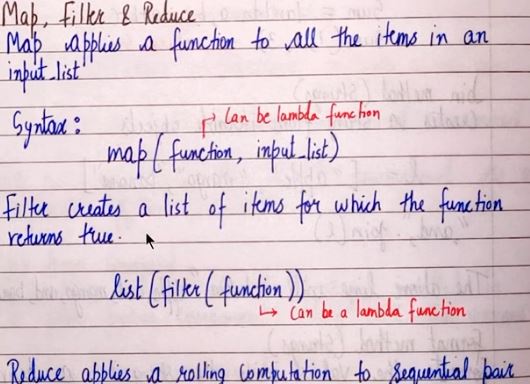 Map, Filter & Reduce
Map applies a function to all the items in an
input_list
Can be lambda function
Syntax:
map( function, input_list)
Filter creates a list of items for which the function
returns true.
list (filter ( function ))
Can be a lambda function
Reduce applies a rolling computation to sequential pair